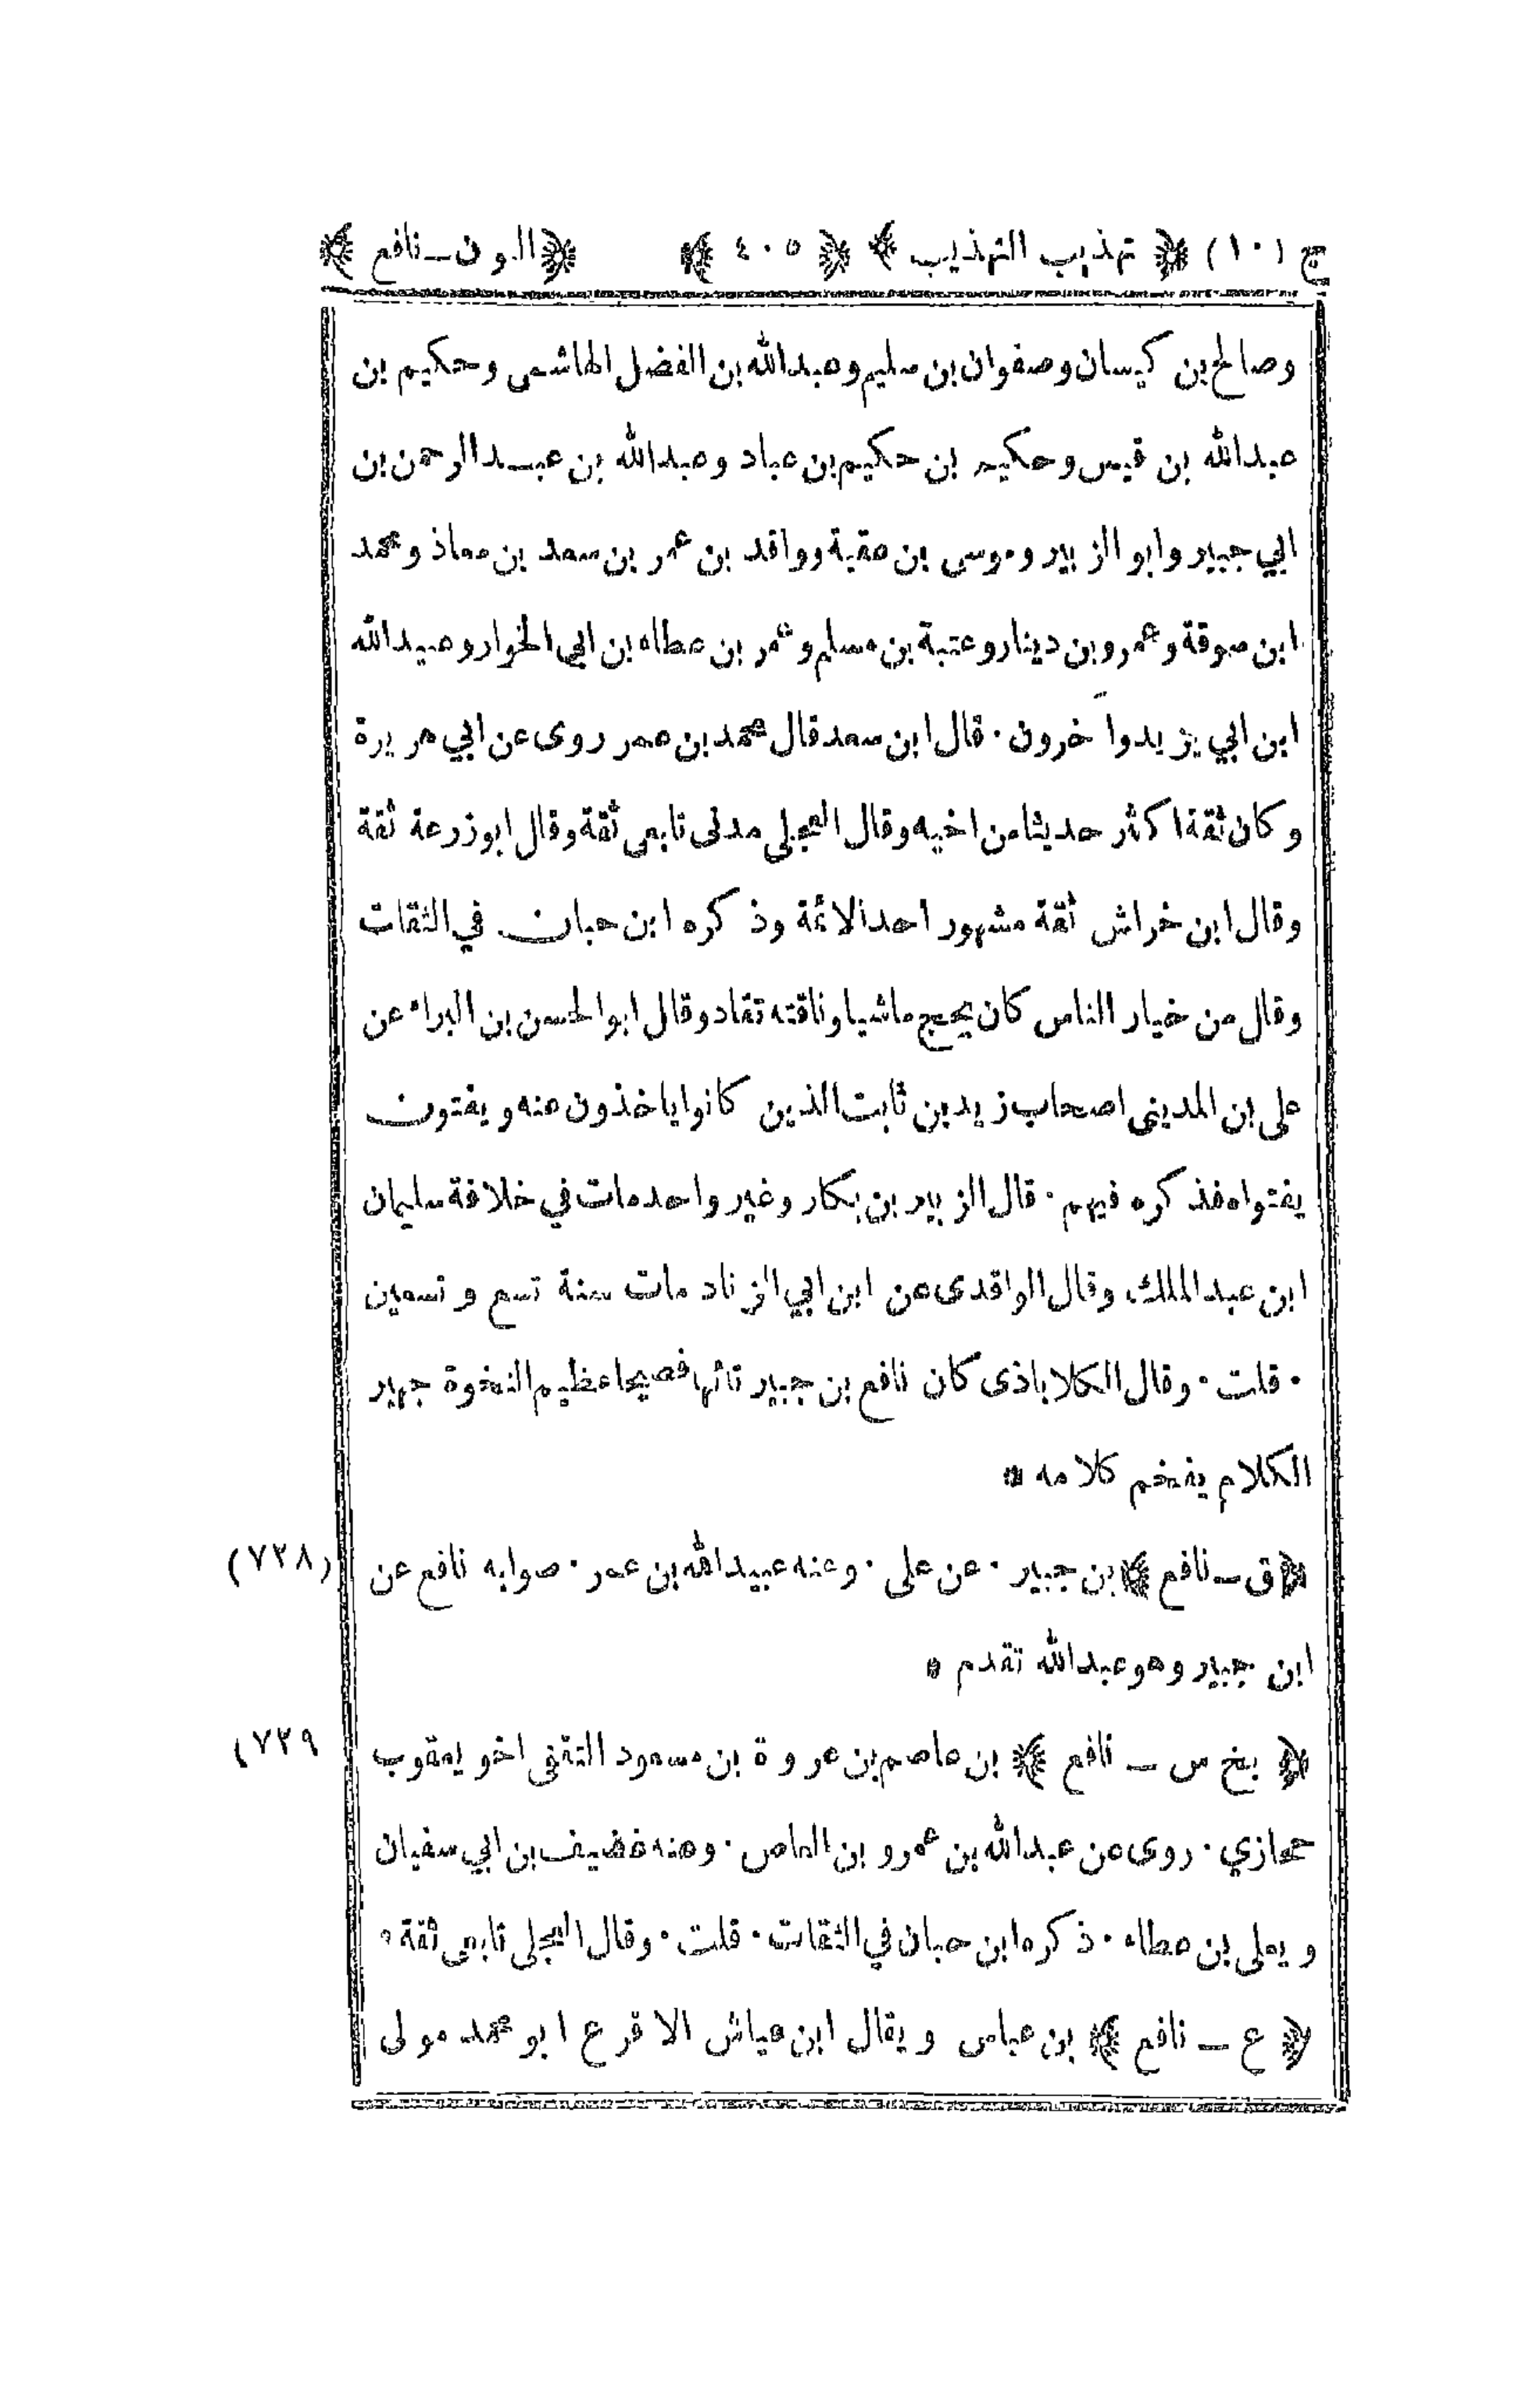 ج (١٠) ﴿ تهذيب التهذيب ﴾ ﴿ ٤٠٥ ﴾ ﴿ النون ــ نافع ﴾
وصالح بن كيسان وصفوان بن سليم وعبدالله بن الفضل الهاشمى وحكيم بن
عبدالله بن قيس وحكيم بن حكيم بن عباد وعبدالله بن عبدالرحمن بن
ابي جبير وابو الزبير وموسى بن عقبة وواقد بن عمر بن سعد بن معاذ ومحمد
ابن سوقة وعمرو بن دينار وعتبة بن مسلم وعمر بن عطاء بن ابي الخوار وعبيدالله
ابن ابي يزيد وآخرون ٠ قال ابن سعد قال محمد بن عمر روى عن ابي هريرة
وكان ثقة اكثر حديثا من اخيه وقال العجلى مدنى تابعى ثقة وقال ابوزرعة ثقة
وقال ابن خراش ثقة مشهور احد الائمة وذكره ابن حبان في الثقات
وقال من خيار الناس كان يحج ماشيا وناقته تقاد وقال ابوالحسن بن البراء عن
على بن المدينى اصحاب زيد بن ثابت الذين كانوا ياخذون عنه ويفتون
بفتواه فذكره فيهم ٠ قال الزبير بن بكار وغير واحد مات في خلافة سليمان
ابن عبد الملك وقال الواقدى عن ابن ابي الزناد مات سنة تسع و تسعين
٠ قلت ٠ وقال الكلاباذى كان نافع بن جبير تائها فصيحا عظيم النخوة جهير
الكلام يفخم كلامه *
﴿ ق ــ نافع ﴾ بن جبير ٠ عن على ٠ وعنه عبيدالله بن عمر ٠ صوابه نافع عن (٧٢٨)
ابن جبير وهو عبدالله تقدم *
﴿ بخ س ــ نافع ﴾ بن عاصم بن عروة بن مسعود الثقفى اخو يعقوب ٧٢٩)
حجازي ٠ روى عن عبدالله بن عمرو بن العاص ٠ وعنه غضيف بن ابي سفيان
و يعلى بن عطاء ٠ ذكره ابن حبان في الثقات ٠ قلت ٠ وقال العجلى تابعى ثقة *
﴿ ع ــ نافع ﴾ بن عباس و يقال ابن عياش الاقرع ابو محمد مولى